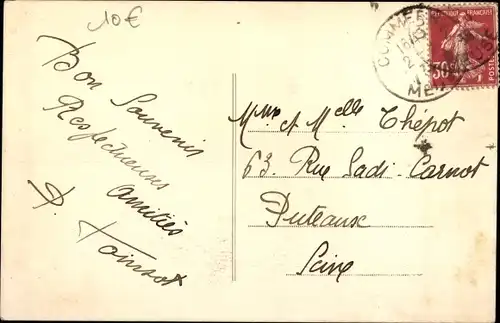 10€
Bon Souvenir
Respectueuses
amitiés
COMMERCY
MEUSE
REPUBLIQUE FRANCAISE
30c
POSTES
Mme et Melle Thépot
63 Rue Sadi-Carnot
Puteaux
Seine